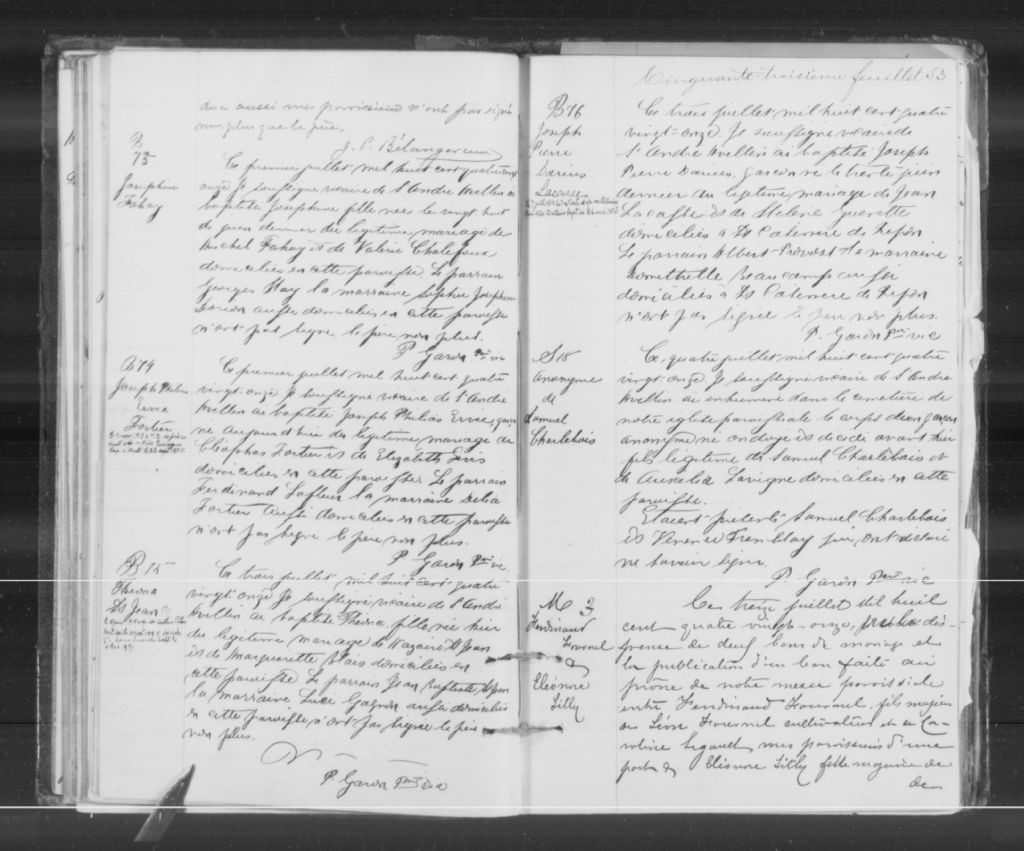 due aussi mes paroissiens n'ont pas signé
non plus que le père.
J. P. Bélanger
B
73
Josephine
Fahay
Ce premier juillet mil huit cent quatre vingt
onze Je soussigné vicaire de St André Avellin ai
baptisé Josephine fille née le vingt huit
de juin dernier du légitime mariage de
Michel Fahay et de Valerie Chalefoux
domiciliés en cette paroisse. Le parrain
Georges Hay la marraine Sophie Josephine
aussi domiciliés en cette paroisse
n'ont pas signé. le père non plus.
P. Garon Ptre vic
B 74
Joseph Philias
Ervie
Fortier
Ce premier juillet mil huit cent quatre
vingt onze Je soussigné vicaire de St André
Avellin ai baptisé Joseph Philias Ervie, garçon
né aujourd'hui du légitime mariage de
Cléophas Fortier et de Elizabeth
domiciliés en cette paroisse. Le parrain
Ferdinand Lafleur la marraine Delia
Fortier aussi domiciliés en cette paroisse
n'ont pas signé le père non plus.
P. Garon Ptre vic
B 75
St Jean
Ce trois juillet mil huit cent quatre
vingt onze Je soussigné vicaire de St André
Avellin ai baptisé fille née hier
du légitime mariage de Nazaire St Jean
et de Marguerette Blais domiciliés en
cette paroisse Le parrain Jean Baptiste St Jean
la marraine Luce Gagnon aussi domiciliés
en cette paroisse n'ont pas signé le père
non plus.
P. Garon Ptre vic
Cinquante troisième feuillet 53
B 76
Joseph
Pierre
Darius
Lacasse
Ce trois juillet mil huit cent quatre
vingt onze Je soussigné vicaire de
St André Avellin ai baptisé Joseph
Pierre Darius, garçon né le trente juin
dernier du légitime mariage de Jean
Lacasse et de Helene Guerette
domiciliés à St Caterine de
Le parrain Albert Prévost la marraine
Domithelle Beauchamp aussi
domiciliés à St Caterine de
n'ont pas signé le père non plus.
P. Garon Ptre vic
S 18
Anonyme
de
Samuel
Charlebois
Ce quatre juillet mil huit cent quatre
vingt onze Je soussigné vicaire de St André
Avellin ai enterré dans le cimetière de
notre église paroissiale le corps d'un garçon
anonyme né ondoyé et décédé avant hier
fils légitime de Samuel Charlebois et
de Aurelia Lavigne domiciliés en cette
paroisse.
Etaient présents Samuel Charlebois
et Tremblay qui ont déclaré
ne savoir signer.
P. Garon Ptre vic
M 3
Ferdinand
Fournel
&
Eléonore
Lilly
Ce treize juillet Mil huit
cent quatre vingt-onze, dis-
pense de deux bans de mariage et
la publication d'un ban faite au
prône de notre messe paroissiale
entre Ferdinand Fournel, fils majeur
de Léon Fournel cultivateur et de Ca-
roline Legault mes paroissiens d'une
part & Eléonore Lilly fille majeure de
de